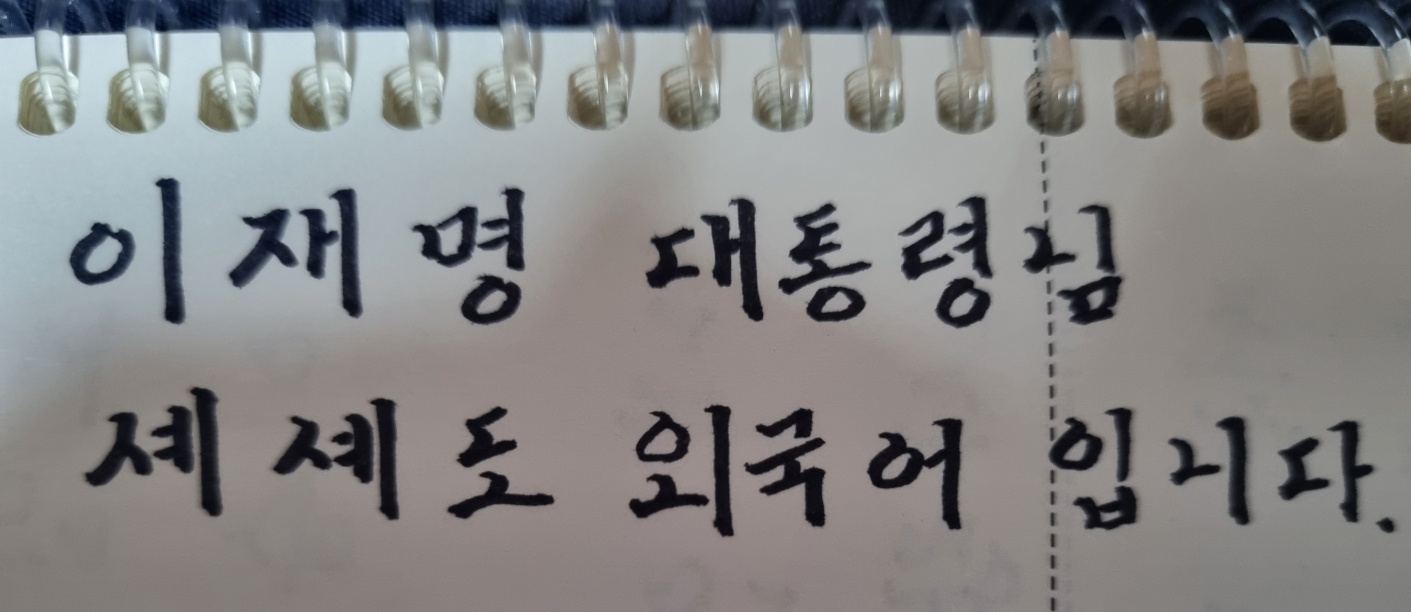 이재명 대통령님
셰셰도 외국어 입니다.